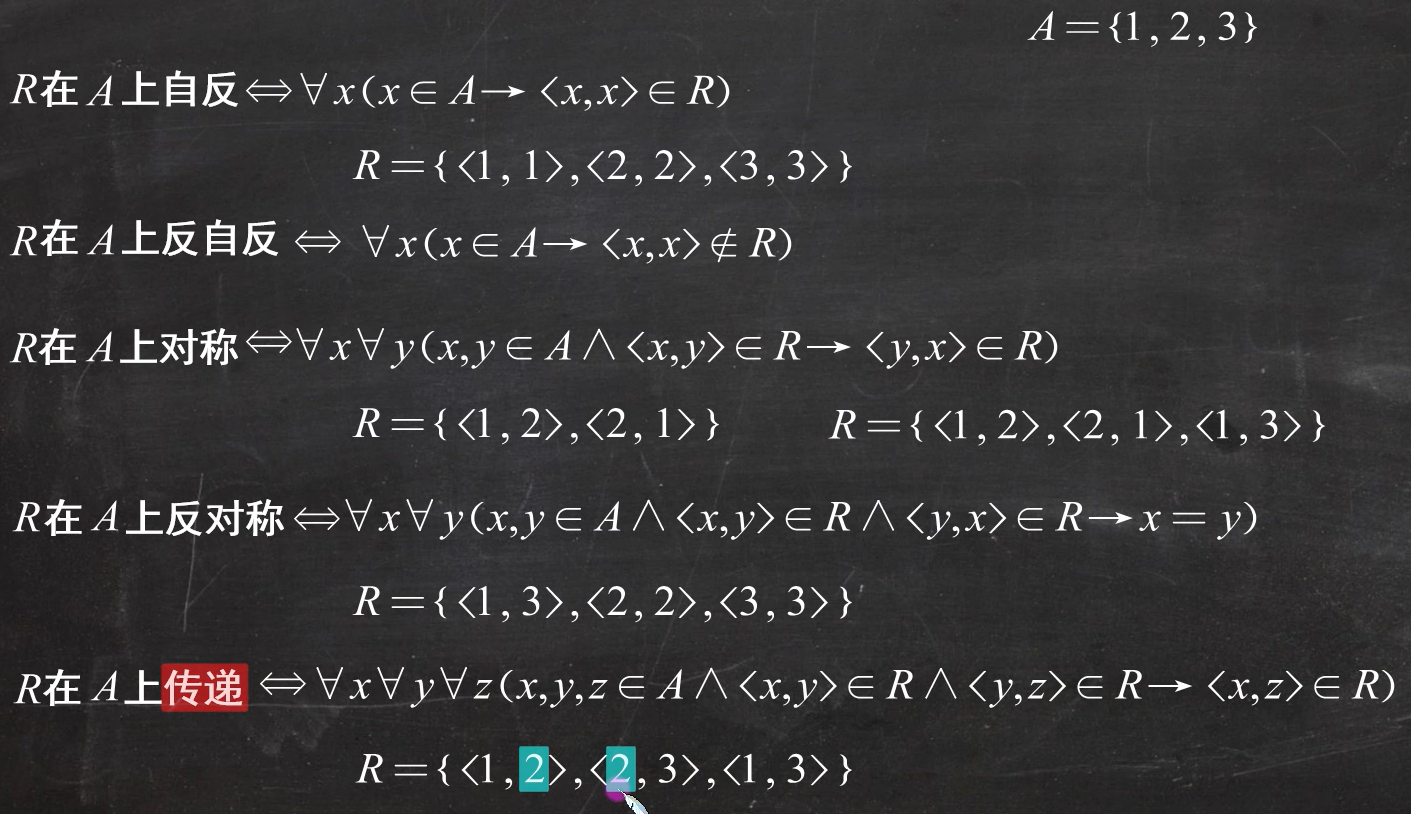 A={1,2,3}
R在A上自反⇔∀x(x∈A→<x,x>∈R)
R={<1,1>,<2,2>,<3,3>}
R在A上反自反⇔∀x(x∈A→<x,x>∉R)
R在A上对称⇔∀x∀y(x,y∈A∧<x,y>∈R→<y,x>∈R)
R={<1,2>,<2,1>} R={<1,2>,<2,1>,<1,3>}
R在A上反对称⇔∀x∀y(x,y∈A∧<x,y>∈R∧<y,x>∈R→x=y)
R={<1,3>,<2,2>,<3,3>}
R在A上传递⇔∀x∀y∀z(x,y,z∈A∧<x,y>∈R∧<y,z>∈R→<x,z>∈R)
R={<1,2>,<2,3>,<1,3>}